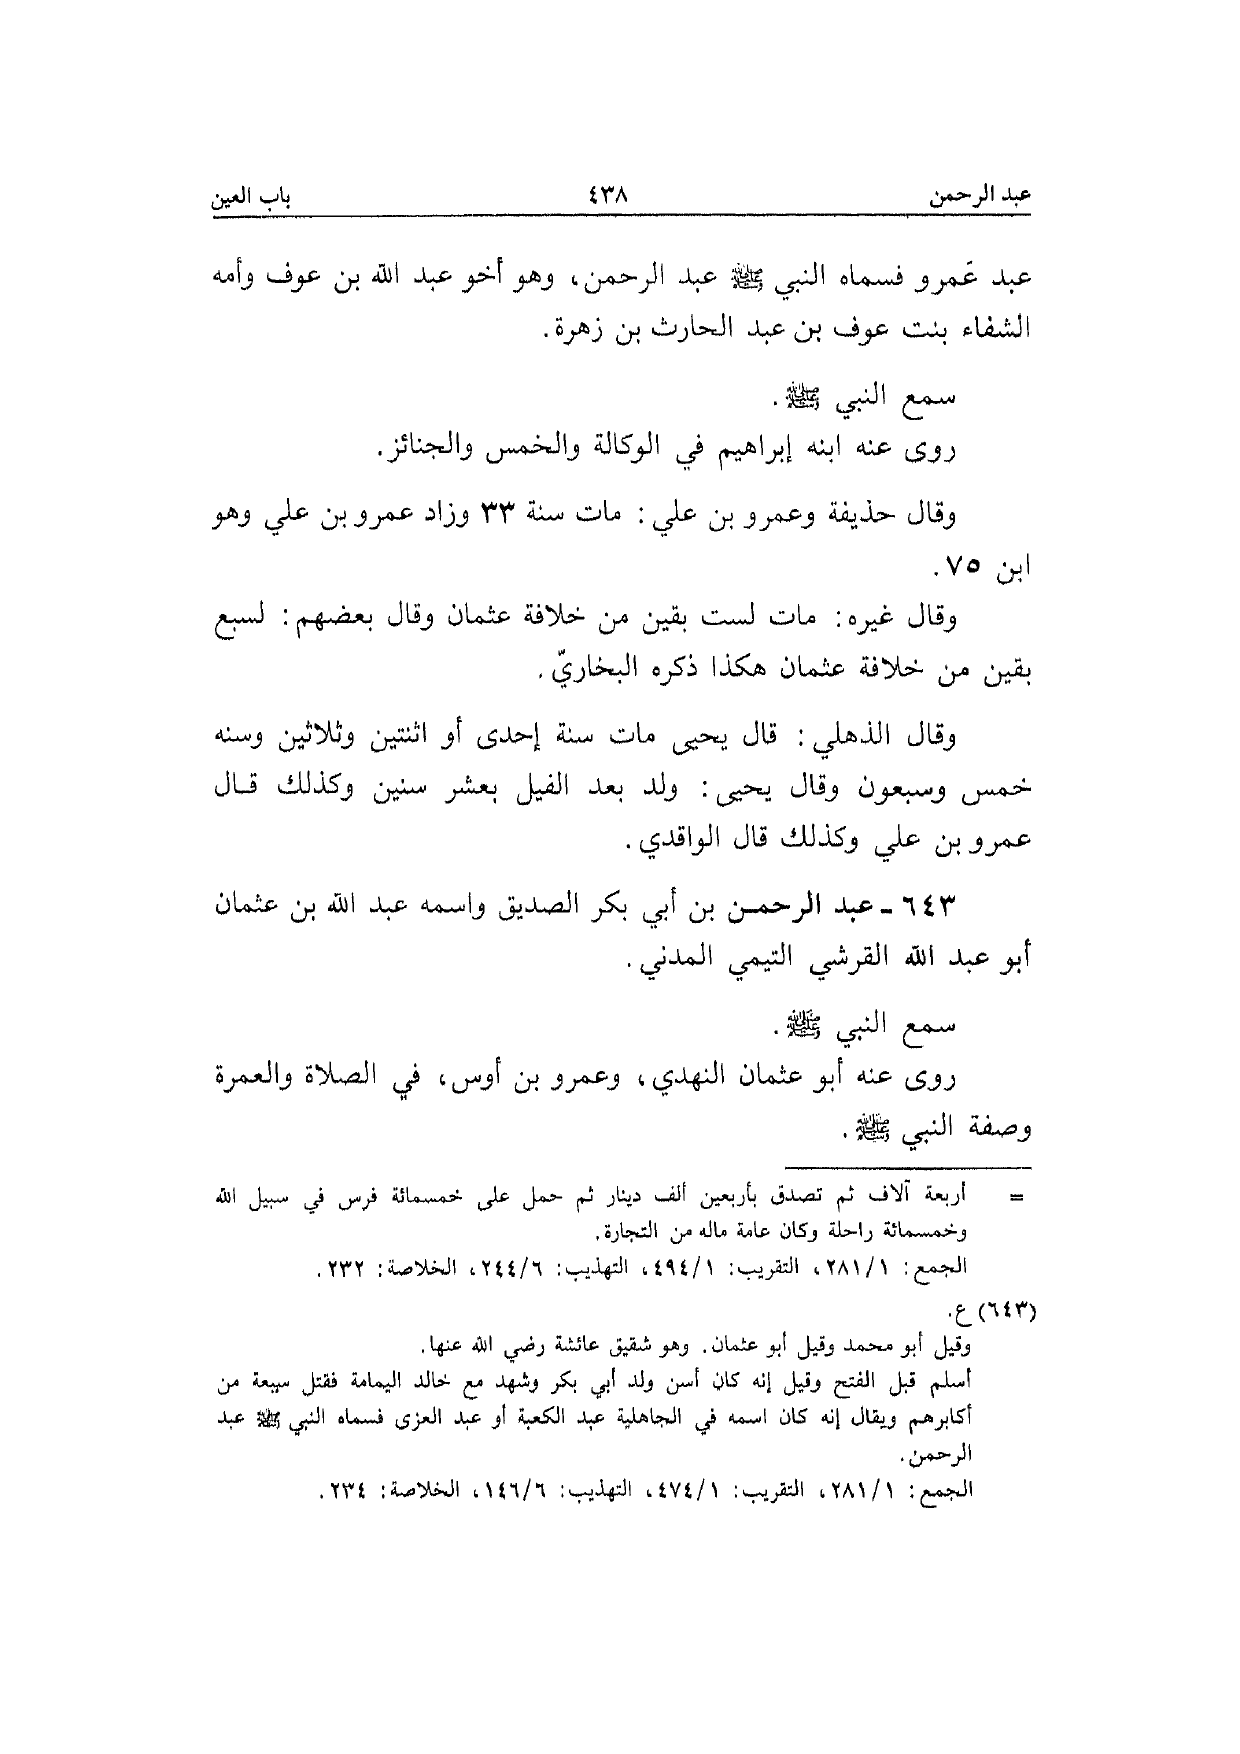 عبد الرحمن ٤٣٨ باب العين
عبد عَمرو فسماه النبي ﷺ عبد الرحمن، وهو أخو عبد الله بن عوف وأمه
الشفاء بنت عوف بن عبد الحارث بن زهرة.
سمع النبي ﷺ.
روى عنه ابنه إبراهيم في الوكالة والخمس والجنائز.
وقال حذيفة وعمرو بن علي: مات سنة ٣٣ وزاد عمرو بن علي وهو
ابن ٧٥.
وقال غيره: مات لست بقين من خلافة عثمان وقال بعضهم: لسبع
بقين من خلافة عثمان هكذا ذكره البخاريّ.
وقال الذهلي: قال يحيى مات سنة إحدى أو اثنتين وثلاثين وسنه
خمس وسبعون وقال يحيى: ولد بعد الفيل بعشر سنين وكذلك قال
عمرو بن علي وكذلك قال الواقدي.
٦٤٣ ـ عبد الرحمن بن أبي بكر الصديق واسمه عبد الله بن عثمان
أبو عبد الله القرشي التيمي المدني.
سمع النبي ﷺ.
روى عنه أبو عثمان النهدي، وعمرو بن أوس، في الصلاة والعمرة
وصفة النبي ﷺ.
= أربعة آلاف ثم تصدق بأربعين ألف دينار ثم حمل على خمسمائة فرس في سبيل الله
وخمسمائة راحلة وكان عامة ماله من التجارة.
الجمع: ٢٨١/١، التقريب: ٤٩٤/١، التهذيب: ٢٤٤/٦، الخلاصة: ٢٣٢.
(٦٤٣) ع.
وقيل أبو محمد وقيل أبو عثمان. وهو شقيق عائشة رضي الله عنها.
أسلم قبل الفتح وقيل إنه كان أسن ولد أبي بكر وشهد مع خالد اليمامة فقتل سبعة من
أكابرهم ويقال إنه كان اسمه في الجاهلية عبد الكعبة أو عبد العزى فسماه النبي ﷺ عبد
الرحمن.
الجمع: ٢٨١/١، التقريب: ٤٧٤/١، التهذيب: ١٤٦/٦، الخلاصة: ٢٣٤.